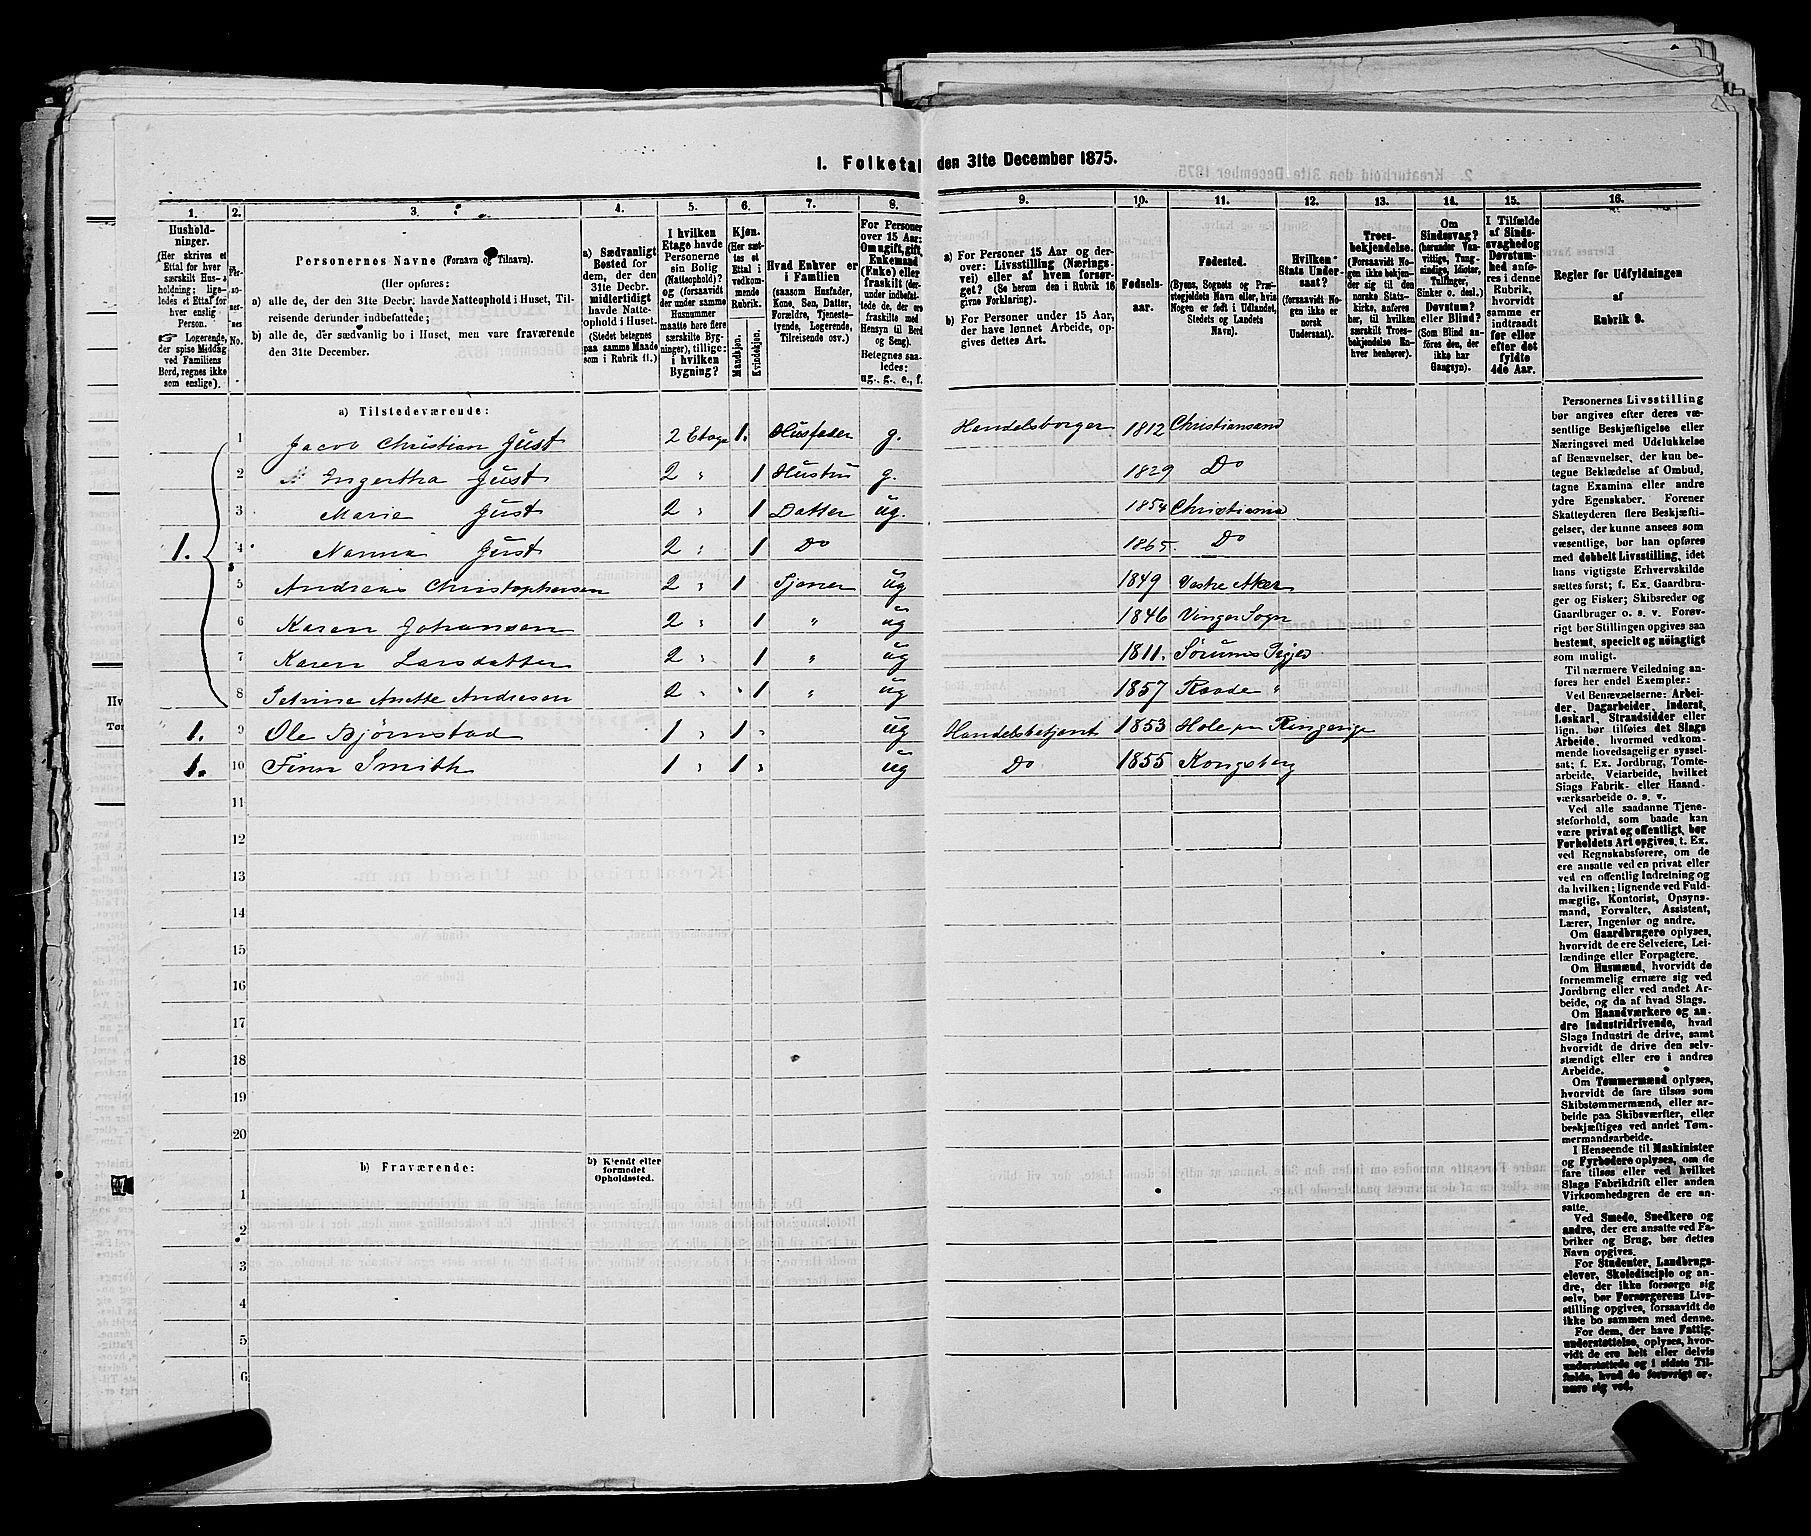 1. Folketal den 31te December 1875.
1. 2. 3. 4. 5. 6. 7. 8. 9. 10. 11. 12. 13. 14. 15. 16.
Hushold-
ninger.
(Her skrives et
Ettal for hver
særskilt Hus-
holdning; lige-
ledes et Ettal for
hver enslig
Person.
☞ Logerende,
der spise Middag
ved Familiens
Bord, regnes ikke
som enslige).
Per-
so-
ner-
nes
No.
Personernes Navne (Fornavn og Tilnavn).
(Her opføres:
a) alle de, der den 31te Decbr. havde Natteophold i Huset, Til-
reisende derunder indbefattede;
b) alle de, der sædvanlig bo i Huset, men vare fraværende
den 31te December.
a) Sædvanligt
Bosted for
dem, der den
31te Decbr.
midlertidigt
havde Natte-
ophold i Huset.
(Stedet betegnes
paa samme Maade
som i Rubrik 11.)
I hvilken
Etage havde
Personerne
sin Bolig
(Natteophold)?
og (forsaavidt
der under samme
Husnummer
maatte høre flere
særskilte Byg-
ninger), tillige:
i hvilken
Bygning?
Kjøn.
(Her sæt-
tes et
Ettal i
vedkom-
mende
Rubrik.
Mandskjøn.
Kvindekjøn.
Hvad Enhver er
i Familien
(saasom Husfader,
Kone, Søn, Datter,
Forældre, Tjeneste-
tyende, Logerende,
Tilreisende osv.)
For Personer
over 15 Aar:
Om ugift, gift,
Enkemand
(Enke) eller
fraskilt (der-
under indbefat-
tede de, der ere
fraskilte med
Hensyn til Bord
og Seng).
Betegnes saa-
ledes:
ug., g., e., f.
a) For Personer 15 Aar og der-
over: Livsstilling (Nærings-
vei) eller af hvem forsør-
get? (Se herom den i Rubrik 16
givne Forklaring).
b) For Personer under 15 Aar,
der have lønnet Arbeide, op-
gives dettes Art.
Fødsels-
aar.
Fødested.
(Byens, Sognets og Præ-
stegjeldets Navn eller, hvis
Nogen er født i Udlandet,
Stedets og Landets
Navn).
Hvilken
Stats Under-
saat?
(forsaavidt No-
gen ikke er
norsk
Undersaat).
Troes-
bekjendelse.
(Forsaavidt No-
gen ikke bekjen-
der sig til den
norske Stats-
kirke, anføres
her, til hvilken
særskilt Troes-
bekjendelse En-
hver henhører).
Om
Sindssvag?
(herunder Van-
vittige, Tung-
sindige, Idioter,
Tulfinger,
Sinker o. desl.)
Døvstum?
eller Blind?
(Som Blind an-
føres den, der
ikke har
Gangsyn).
I Tilfælde
af Sinds-
svaghed og
Døvstum-
hed anfø-
res i denne
Rubrik,
hvorvidt
samme er
indtraadt
før eller
efter det
fyldte
4de Aar.
Regler for Udfyldningen
af
Rubrik 9.
a) Tilstedeværende:
1 Jacob Christian Just 2 Etage 1. Husfader g. Handelsborger 1812 Christiansand
2 Ingertha Just 2 " 1 Hustru g. 1829 Do
3 Marie Just 2 " 1 Datter ug. 1854 Christiania
1. 4 Nanna Just 2 " 1 Do 1865. Do
5 Andreas Christophersen 2 " 1 Tjener ug 1849 Vestre Aker
6 Karen Johansen 2 " 1 " ug 1846 Vinger Sogn
7 Karen Larsdatter 2 " 1 " ug 1811. Sørums Pgjld
8 Petrine Anette Andresen 2 " 1 " ug 1857 Raade "
1. 9 Ole Bjørnstad 1 " 1 " ug Handelsbetjent 1853 Hole paa Ringerige
1. 10 Finn Smith 1 " 1 " ug Do 1855 Kongsberg
11
12
13
14
15
16
17
18
19
20
b) Fraværende:
b) Kjendt eller
formodet
Opholdssted.
1
2
3
4
5
6
Personernes Livsstilling
bør angives efter deres væ-
sentlige Beskjæftigelse eller
Næringsvei med Udelukkelse
af Benævnelser, der kun be-
tegne Beklædelse af Ombud,
tagne Examina eller andre
ydre Egenskaber. Forener
Skatteyderen flere Beskjæfti-
gelser, der kunne ansees som
væsentlige, bør han opføres
med dobbelt Livsstilling, idet
hans vigtigste Erhvervskilde
sættes først; f. Ex. Gaardbru-
ger og Fisker; Skibsreder og
Gaardbruger o. s. v. Forøv-
rigt bør Stillingen opgives saa
bestemt, specielt og nøiagtigt
som muligt.
Til nærmere Veiledning an-
føres her endel Exempler:
Ved Benævnelserne: Arbei-
der, Dagarbeider, Inderst,
Løskarl, Strandsidder eller
lign. bør tilføies det Slags
Arbeide, hvormed vedkom-
mende hovedsagelig er syssel-
sat; f. Ex. Jordbrug, Tomte-
arbeide, Veiarbeide, hvilket
Slags Fabrik- eller Haand-
værksarbeide o. s. v.
Ved alle saadanne Tjene-
steforhold, som baade kan
være privat og offentligt, bør
Forholdets Art opgives, t. Ex.
ved Regnskabsførere, om de
ere ansatte ved en privat eller
ved en offentlig Indretning og
da hvilken; lignende ved Fuld-
mægtig, Kontorist, Opsyns-
mand, Forvalter, Assistent,
Lærer, Ingeniør og andre.
Om Gaardbrugere oplyses,
hvorvidt de ere Selveiere, Lei-
lændinge eller Forpagtere.
Om Husmænd, hvorvidt de
fornemmelig ernære sig ved
Jordbrug eller ved andet Ar-
beide, og da af hvad Slags.
Om Haandværkere og an-
dre Industridrivende, hvad
Slags Industri de drive, samt
hvorvidt de drive den selv-
stændigt eller ere i andres
Arbeide.
Om Tømmermænd oplyses,
hvorvidt de fare tilsøs som
Skibstømmermænd, eller ar-
beide paa Skibsværfter, eller
beskjæftiges ved andet Tøm-
mermandsarbeide.
I Henseende til Maskinister
og Fyrbødere oplyses, om de
fare tilsøs eller ved hvilket
Slags Fabrikdrift eller anden
Virksomhedsgren de ere an-
satte.
Ved Smede, Snedkere og
andre, der ere ansatte ved Fa-
briker og Brug, bør dettes
Navn opgives.
For Studenter, Landbrugs-
elever, Skoledisciple og an-
dre, der ikke forsørge sig
selv, bør Forsørgerens Livs-
stilling opgives, forsaavidt de
ikke bo sammen med denne.
For dem, der have Fattig-
understøttelse, oplyses, hvor-
vidt de ere helt eller delvis
understøttede og i sidste Til-
fælde, hvad de forøvrigt er-
nære sig ved.